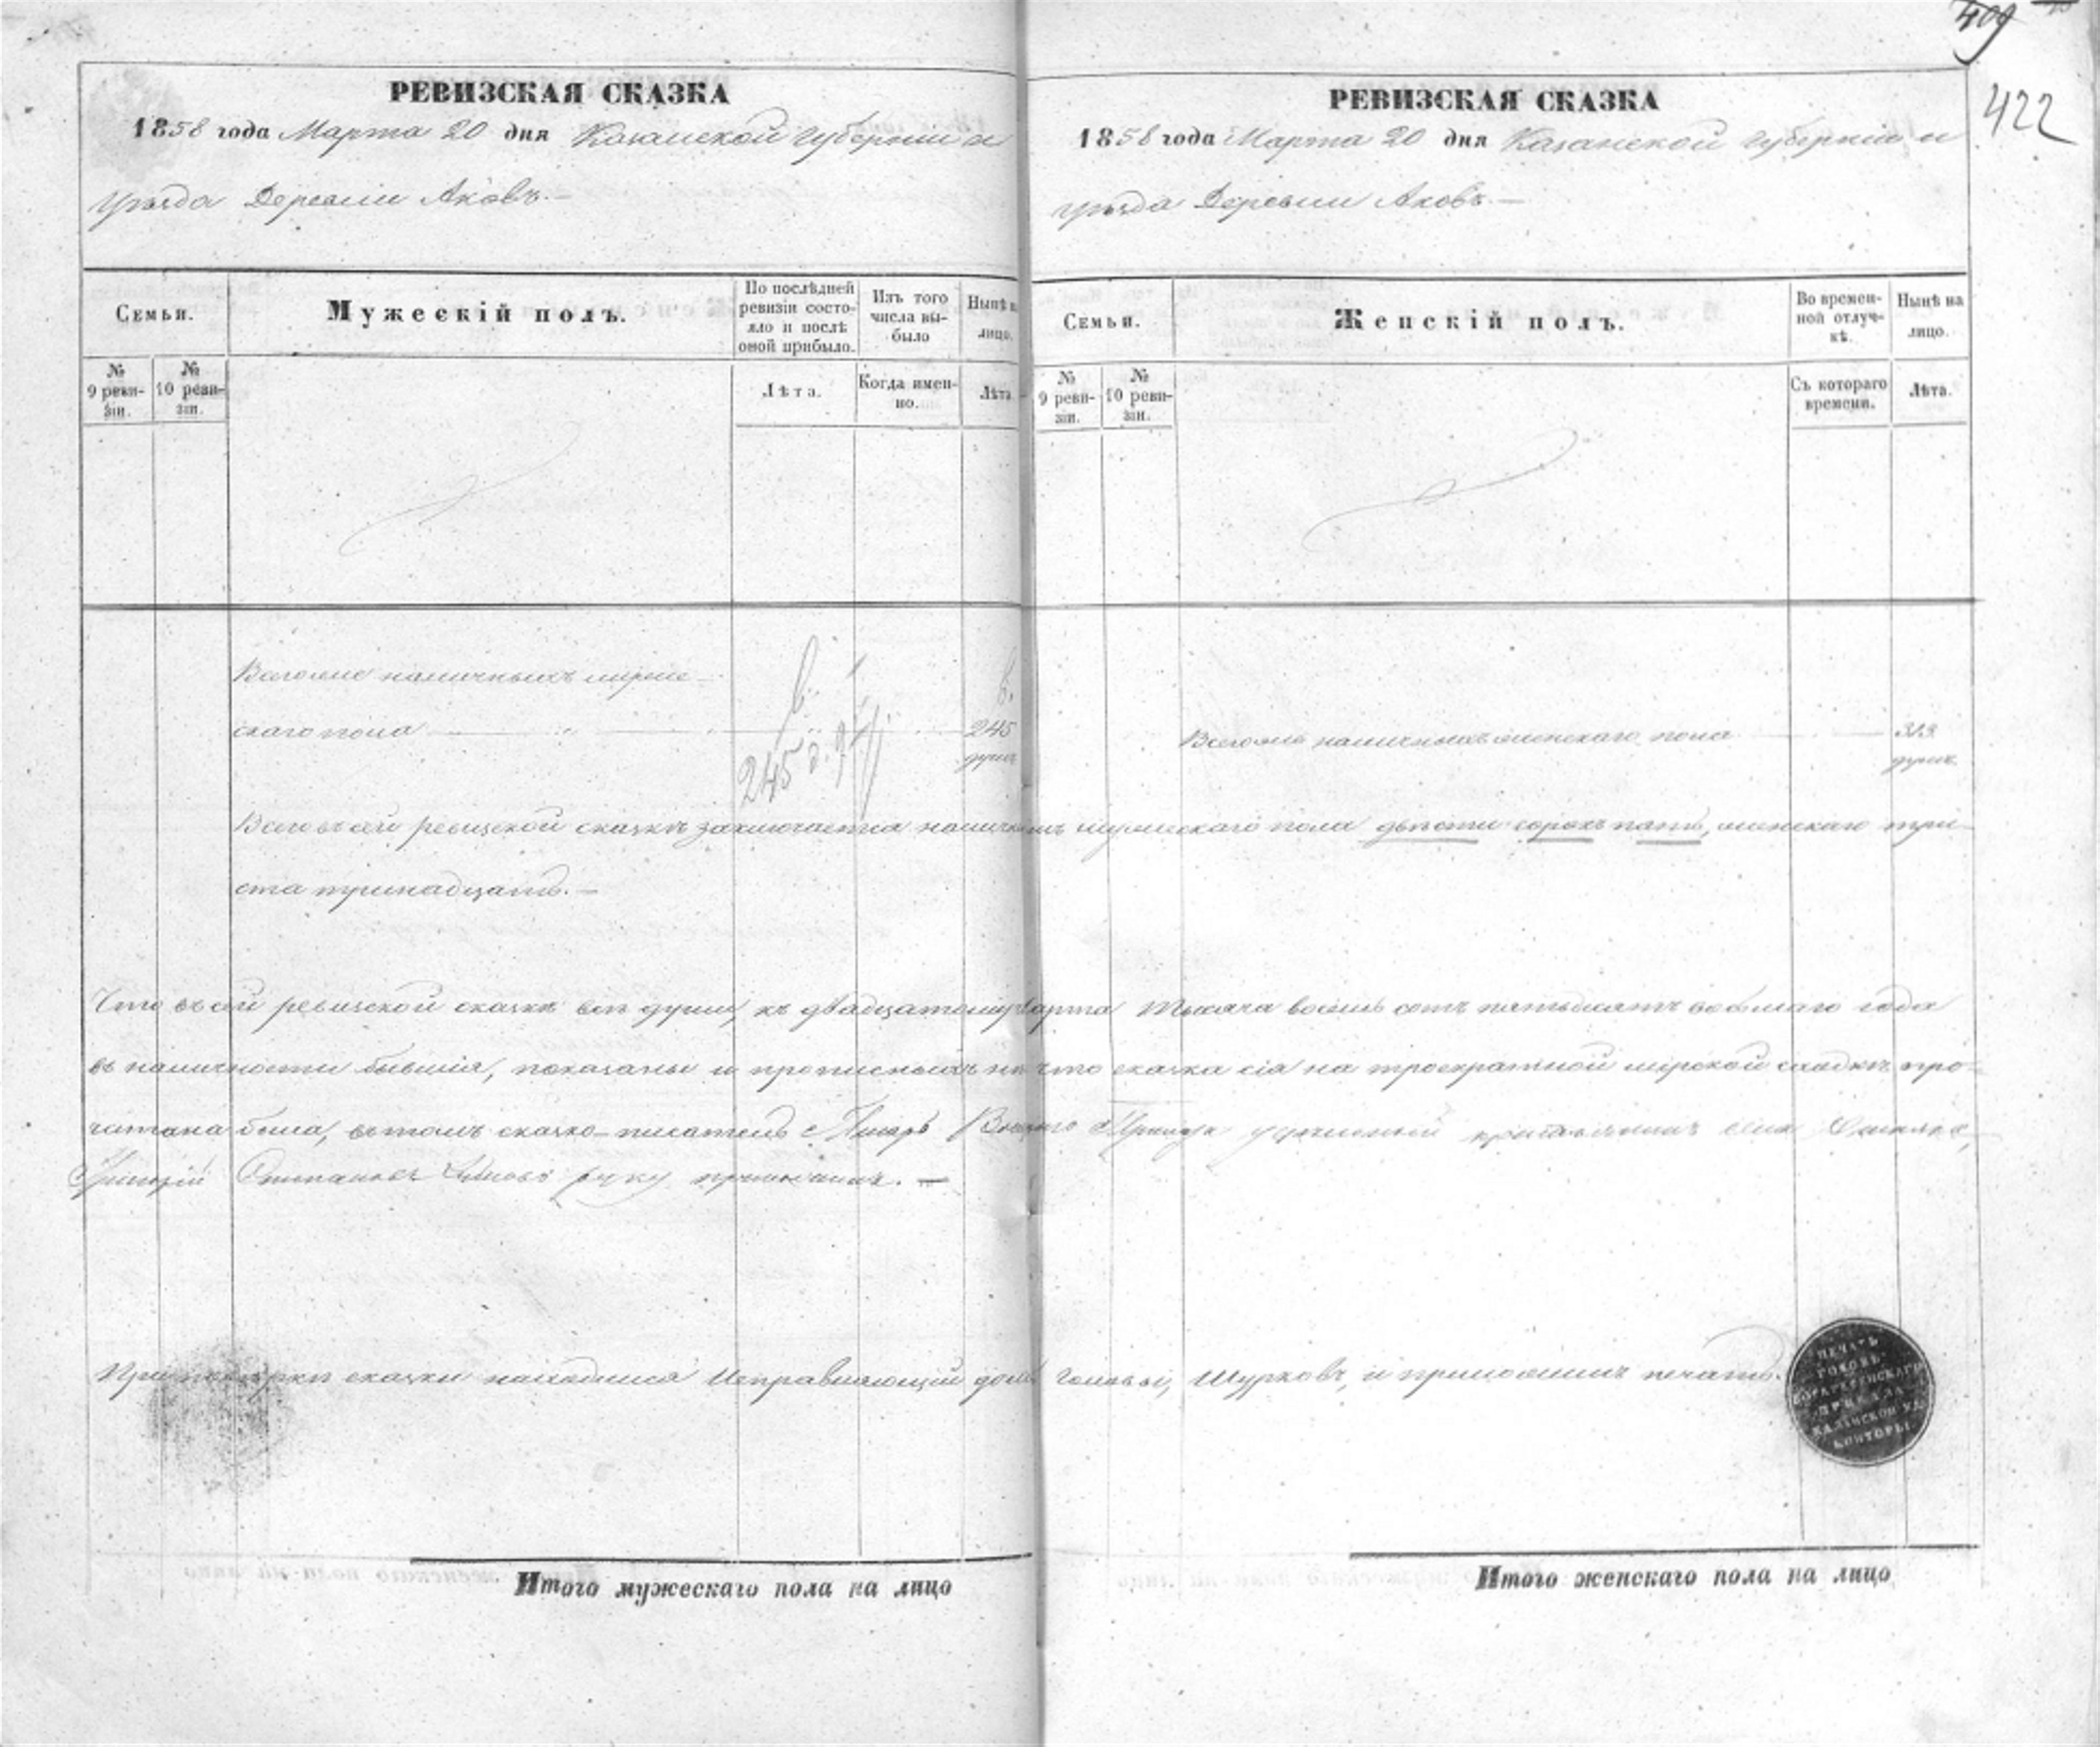 409
422
РЕВИЗСКАЯ СКАЗКА
1858 года Марта 20 дня Казанской Губерніи и
уѣзда Деревни Аковъ.—
Семьи.
Мужескій полъ.
По послѣдней ревизіи состояло и послѣ оной прибыло.
Изъ того числа выбыло
Нынѣ на лицо.
№ 9 ревизіи.
№ 10 ревизіи.
Лѣта.
Когда именно.
Лѣта.
Всего же наличныхъ муже-
скаго пола
245 душъ
245 д.
РЕВИЗСКАЯ СКАЗКА
1858 года Марта 20 дня Казанской Губерніи и
уѣзда Деревни Аковъ.—
Семьи.
Женскій полъ.
Во временной отлучкѣ.
Нынѣ на лицо.
№ 9 ревизіи.
№ 10 ревизіи.
Съ котораго времени.
Лѣта.
Всего же наличныхъ женскаго пола
313 душъ
Всего въ сей ревизской сказкѣ заключается наличныхъ мужескаго пола двѣсти сорокъ пять, женскаго три-
ста тринадцать.—
Что въ сей ревизской сказкѣ всѣ души, къ двадцатому Марта тысяча восемь сотъ пятьдесятъ восьмаго года
въ наличности бывшія, показаны и прописныхъ нѣтъ что сказка сія на троекратной мірской сходкѣ про-
читана была, въ томъ сказко-писатель Писарь
Григорій Степановъ руку приложилъ.—
При повѣркѣ сказки находился Исправляющій долж. Головы, Шурковъ, и приложилъ печать.
ПЕЧАТЬ
ГОЛОВЫ
ПРИКАЗА
КАЗАНСКОЙ УД.
КОНТОРЫ
Итого мужескаго пола на лицо
Итого женскаго пола на лицо